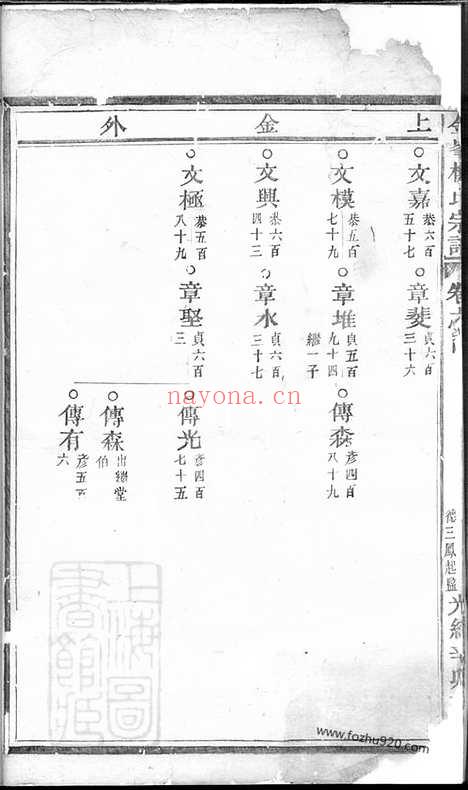 上金外
文嘉 恭六百五十七
章斐 貞六百三十六
文模 恭五百七十九
章堆 貞五百九十四 繼一子
傳森 彥四百八十九
文興 恭六百四十三
章水 貞六百三十七
文極 恭五百八十九
章堅 貞六百三
傳光 彥四百七十五
傳森 出繼堂伯
傳有 彥五六
氏宗譜 卷
光緒辛卯
上海圖書館藏
nayona.cn
www.fozhu920.com